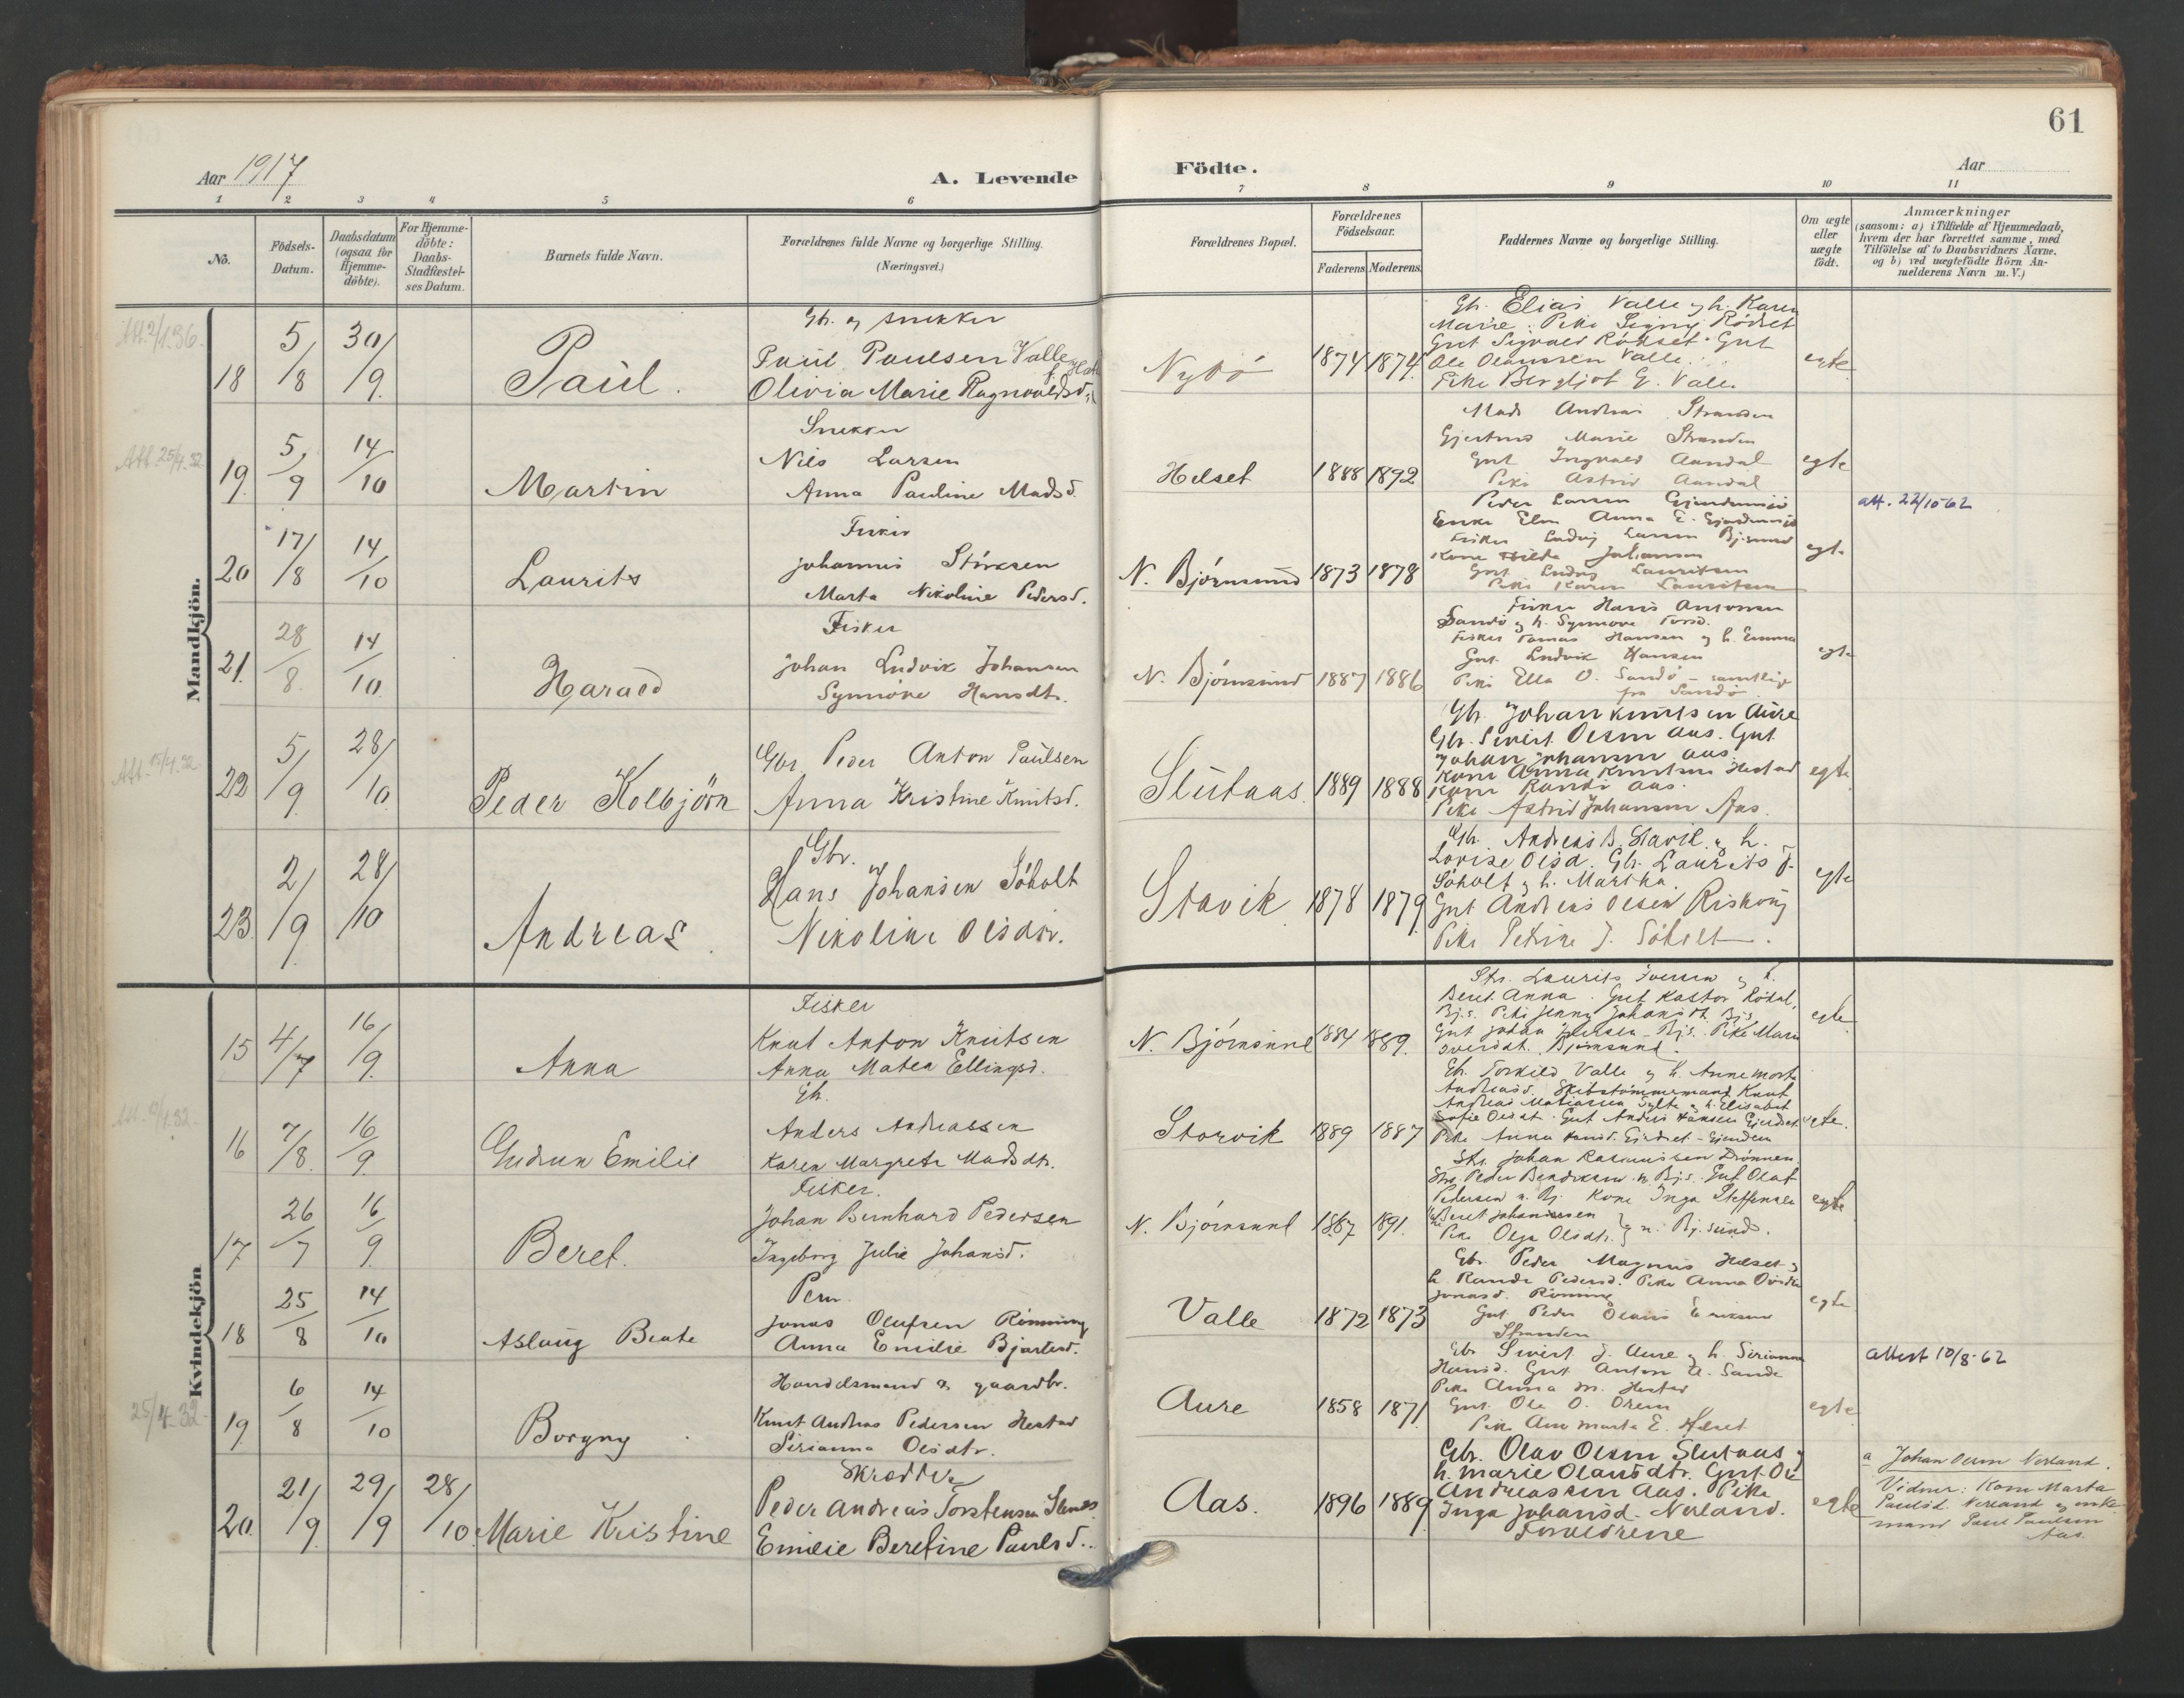 61
Aar 1917
A. Levende
Födte.
Aar
1 2 3 4 5 6 7 8 9 10 11
No.
Födsels-Datum.
Daabsdatum (ogsaa for Hjemme-döbte).
For Hjemme-döbte: Daabs-Stadfæstel-ses Datum.
Barnets fulde Navn.
Forældrenes fulde Navne og borgerlige Stilling.
(Næringsvei.)
Forældrenes Bopæl.
Forældrenes Födselsaar.
Faderens. Moderens.
Faddernes Navne og borgerlige Stilling.
Om ægte eller uægte födt.
Anmærkninger
(saasom: a) i Tilfælde af Hjemmedaab,
hvem der har forrettet samme, med
Tilföielse af to Daabsvidners Navne.
og b) ved uægtefödte Börn An-
melderens Navn m. V.)
Mandkjön.
18 5/8 30/9 Paul.
Gbr. og snekker
Paul Paulsen Valle
Olivia Marie Ragnvaldsd.
Nybö 1874 1874
Gbr. Elias Valle og h. Karen
Marie. Pike Signy Rödset
Gut Sigvald Rödset. Gut
Ole Olaussen Valle.
Pike Bergljot G. Valle
egte
Att. 25/4.32
19 5/9 14/10 Martin
Snekker
Nils Larsen
Anna Pauline Madsd.
Helset 1888 1892
Mads Andreas Stranden
Marie Stranden
Gut Ingvald Aandal
Pike Astrid Aandal
egte
att. 22/10-62
20 17/8 14/10 Laurits
Fisker
Johannes
Marta Nikoline Pedersd.
N. Björnsund 1873 1878
Peder Larsen
Enke Elen Anna E.
Fisker Ludvig Larsen
Kone Hilda Johansen
Gut Ludvig Lauritsen
Pike Karen Lauritsen
egte
21 28/8 14/10 Harald
Fisker
Johan Ludvik Johansen
Synnöve Hansdtr.
N. Björnsund 1887 1886
Fisker Hans Antonsen
Sandö og h. Synnöve
Fisker Tomas Hansen og h. Emma
Gut Ludvik Hansen
Pike Ella O. Sandö – samtlige
fra Sandö.
egte
Att. 15/4.32
22 5/9 28/10 Peder Kolbjörn
Gbr. Peder Anton Paulsen
Anna Kristine Knutsd.
Slutaas 1889 1888
Gbr. Johan Knutsen Aure
Gbr. Sivert Olsen Aas. Gut
Johan Johansen Aas.
Kone Anna Knutsen Hestad
Kone Randi Aas.
Pike Astrid Johansen Aas.
egte
23 2/9 28/10 Andreas
Gbr.
Hans Johansen Söholt
Nikoline Olsdtr.
Stavik 1878 1879
Gbr. Andreas B. Stavik og h.
Lovise Olsd. Gbr. Laurits J.
Söholt og h. Martha.
Gut Andreas Olsen
Pike Petrine J. Söholt.
egte
Kvindekjön
15 4/7 16/9 Anna
Fisker
Knut Anton Knutsen
Anna Matea Ellingsd.
N. Björnsund 1884 1889
Laurits Iversen og h.
Beret Anna. Gut Kastor Rödal,
Bjs. Pike Jenny Johansdt. Bjs.
Gut Johan Iversen – Bjs. Pike Marie
Iversdt. Björnsund.
egte
16 7/8 16/9 Gudrun Emilie
Gbr.
Anders Andreassen
Karen Margrete Madsdtr.
Storvik 1889 1887
Gbr. Torkild Valle og h. Anne Marta
Andreasd. Skibstömmermand Knut
Andreas Mathiassen Sylte og h. Elisabet
Sofie Olsdt. Gut Anders Hansen
Pike Anna Hansd.
egte.
17 26/7 16/9 Beret.
Fisker.
Johan Bernhard Pedersen
Ingeborg Julie Johansd.
N. Björnsund 1867 1891.
Johan Rasmussen Drönnen
Peder Bendiksen n. Bjs. Gut Olaf
Pedersen n. Bj. Kone Inga Steffensen
Beret Johannessen
Pike Olga Olsdtr. } n. Bj.sund.
egte
18 25/8 14/10 Aslaug Beate
Pens.
Jonas Olufsen Rönning
Anna Emilie Bjartesd.
Valle 1872 1873
Gbr. Peder Magnus Helset og
h. Randi Pedersd. Pike Anna
Jonasd. Rönning
Gut Peder Olaus Eriksen
Stranden
egte
attest 10/8-62
25/4.32
19 6/8 14/10 Borgny
Handelsmand & gaardbr.
Knut Andreas Pedersen Hestad
Sirianna Olsdtr.
Aure 1858 1871
Gbr. Sivert J. Aure og h. Sirianna
Hansd. Gut Anton A. Sande
Pike Anna M. Hestad
Gut Ole O. Orem
Pike Ane Marta E. Helset
egte
20 21/9 29/9 28/10 Marie Kristine
Skrædder
Peder Andreas Torstensen
Emelie Berefine Paulsd.
Aas. 1896 1889
Gbr. Olav Olsen Slutaas og
h. Marie Olausdtr. Gut Ole
Andreassen Aas. Pike
Inga Johansd. Nerland.
Forældrene
egte
a Johan Olsen Nerland.
Vidner: Kone Marta
Paulsd. Nerland og enke-
mand Paul Paulsen
Aas.